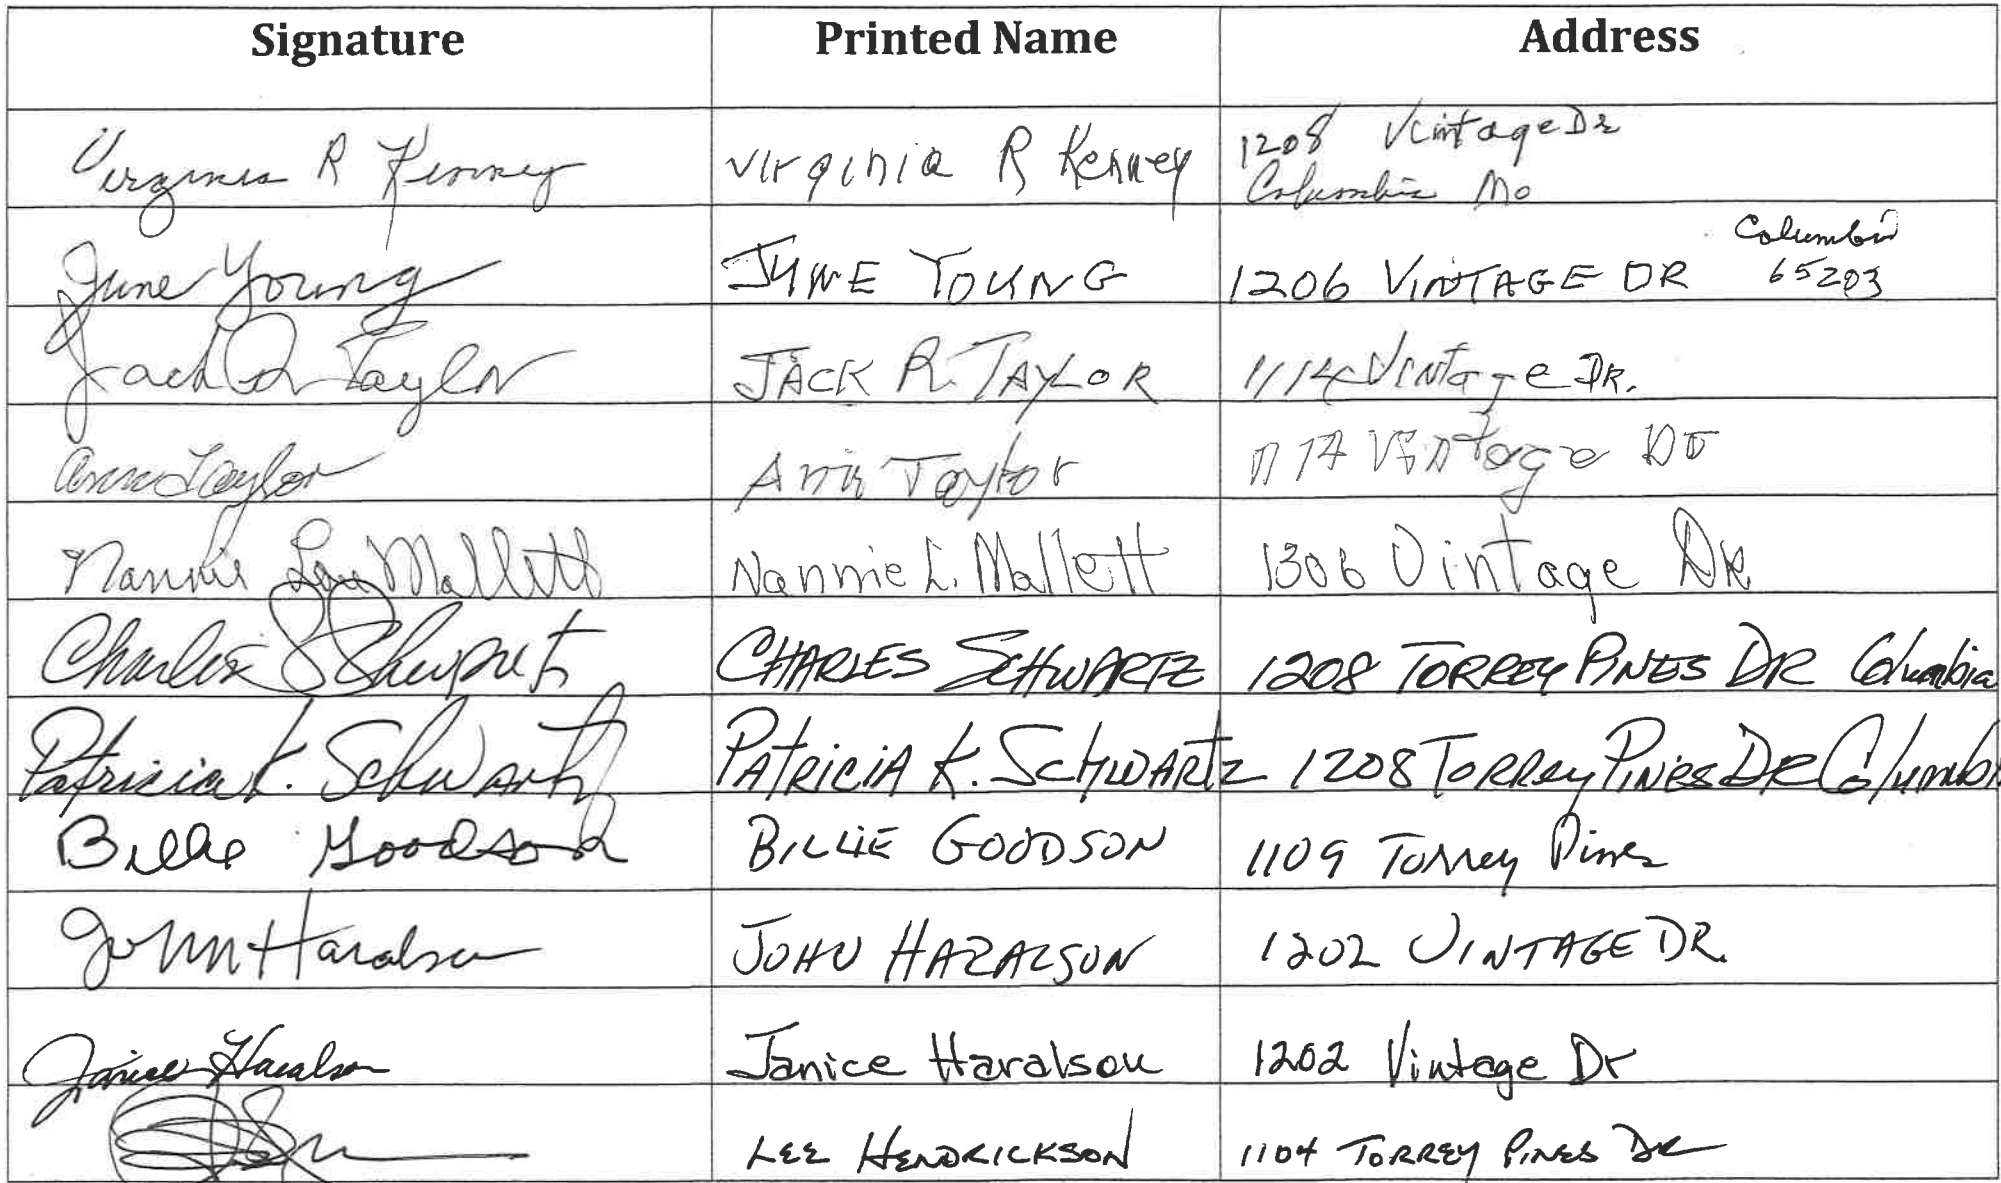 Signature Printed Name Address
Virginia R Kenney Virginia R Kenney 1208 Vintage Dr
Columbia Mo
June Young JUNE YOUNG 1206 VINTAGE DR Columbia
65203
Jack R Taylor JACK R. TAYLOR 1114 Vintage DR.
Ann Taylor Ann Taylor Vintage Dr
Nannie Lou Mallett Nannie L. Mallett 1306 Vintage DR
Charles Schwartz CHARLES SCHWARTZ 1208 TORREY PINES DR Columbia
Patricia K. Schwartz PATRICIA K. SCHWARTZ 1208 TORREY PINES DR Columbi
Billie Goodson BILLIE GOODSON 1109 Torrey Pines
John Haralson JOHN HARALSON 1202 VINTAGE DR.
Janice Haralson Janice Haralson 1202 Vintage Dr
LEE HENDRICKSON 1104 TORREY PINES DR